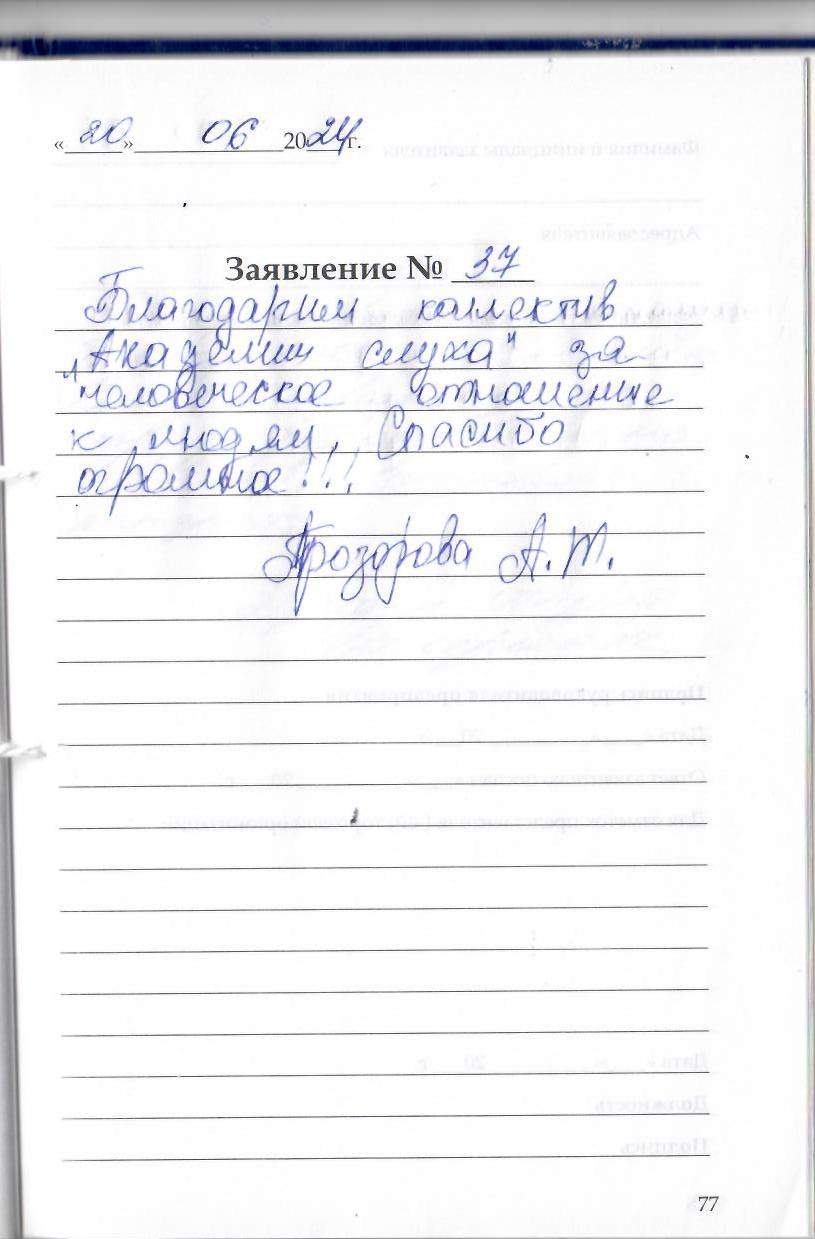 «20» 06 2024г.
Заявление № 37
Благодарим коллектив
„Академии слуха" за
человеческое отношение
к людям, Спасибо
огромное!!!
А.Т.
77